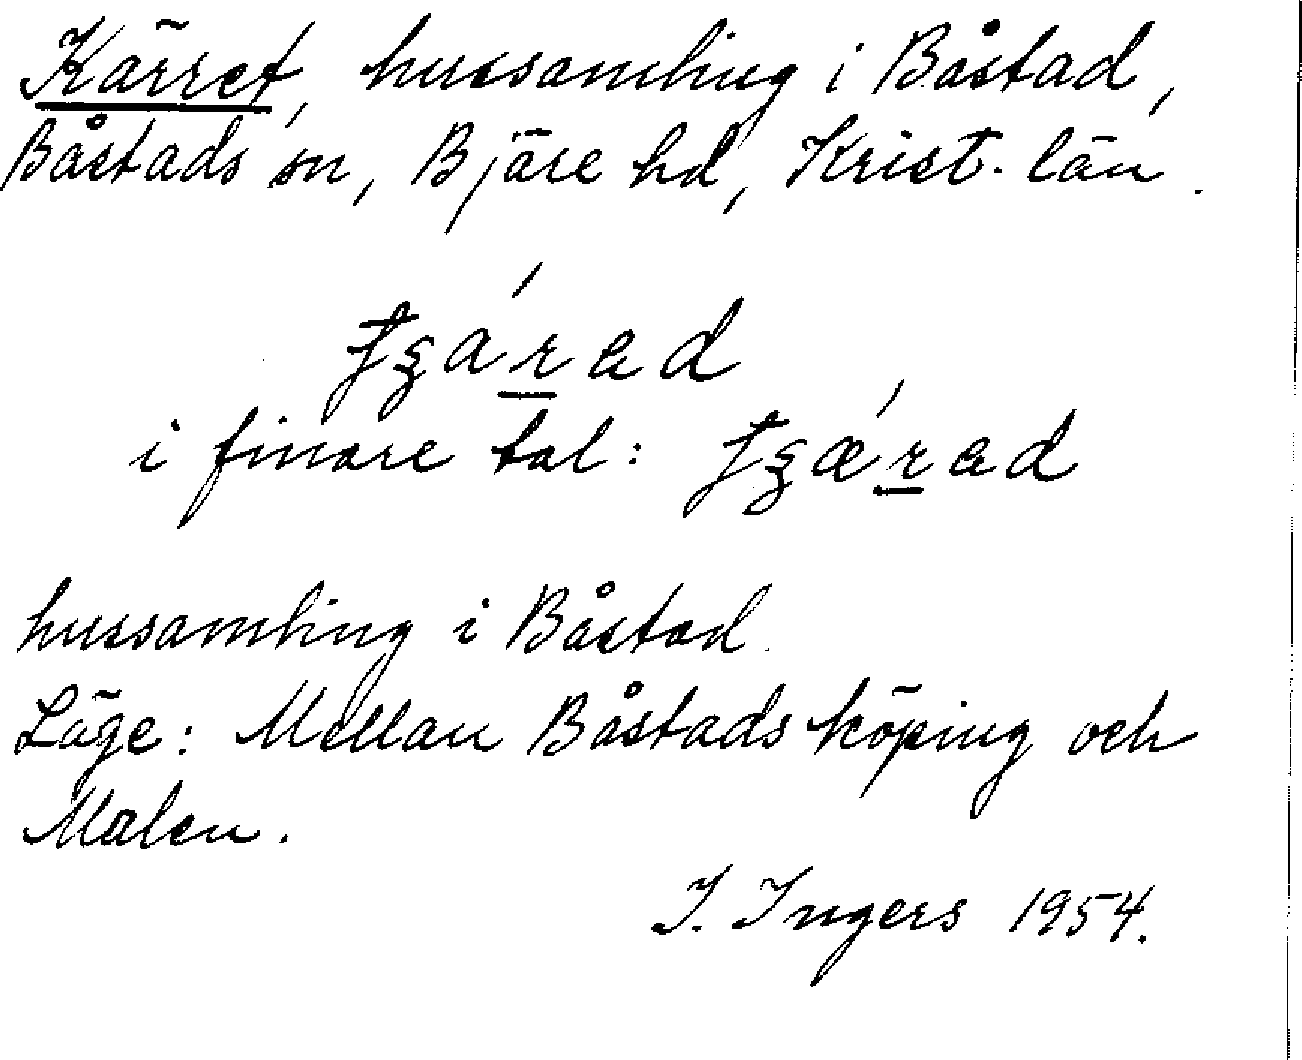 Kärret, hussamling i Båstad,
Båstads sn, Bjäre hd, Krist. län.
i finare tal:
hussamling i Båstad.
Läge: Mellan Båstads köping och
Malen.
I. Ingers 1954.